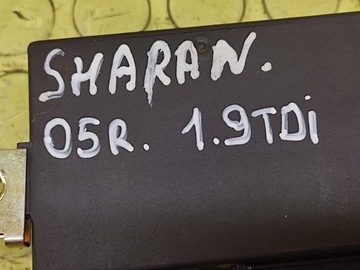 SHARAN.
05R. 1.9TDi